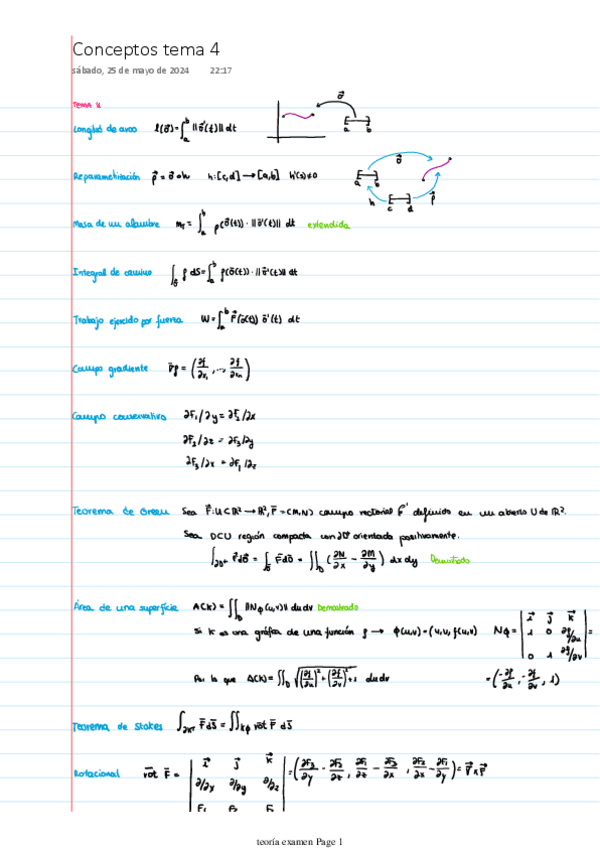 Conceptos tema 4
sábado, 25 de mayo de 2024 22:17
TEMA 4
Longitud de arco l(σ⃗) = ∫_a^b ||σ⃗'(t)|| dt σ⃗ a b
Reparametritación ρ⃗ = σ⃗ ∘ h h: [c,d] → [a,b] h'(s) ≠ 0 σ⃗ a b h c d ρ⃗
Masa de un alambre m_f = ∫_a^b ρ(σ⃗(t)) · ||σ⃗'(t)|| dt extendida
Integral de camino ∫_σ⃗ f dS = ∫_a^b f(σ⃗(t)) · ||σ⃗'(t)|| dt
Trabajo ejercido por fuerza W = ∫_a^b F⃗(σ⃗(t)) σ⃗'(t) dt
Campo gradiente ∇f = (∂f/∂x₁, ..., ∂f/∂xₙ)
Campo conservativo ∂F₁/∂y = ∂F₂/∂x
∂F₂/∂z = ∂F₃/∂y
∂F₃/∂x = ∂F₁/∂z
Teorema de Green Sea F⃗: U⊂R² → R², F⃗ = (M,N) campo vectorial C' definido en un abierto U de R².
Sea D⊂U región compacta con ∂D orientado positivamente.
∫_∂D⁺ F⃗ dσ⃗ = ∫_σ⃗ F⃗ dσ⃗ = ∬_D (∂N/∂x − ∂M/∂y) dx dy Demostrado
Área de una superficie A(K) = ∬_D ||Nϕ(u,v)|| du dv Demostrado
Si K es una gráfica de una función f → ϕ(u,v) = (u,v,f(u,v)) Nϕ = | i⃗ j⃗ k⃗ | 1 0 ∂f/∂u | 0 1 ∂f/∂v | =
Por lo que A(K) = ∬_D √((∂f/∂u)² + (∂f/∂v)² + 1) du dv = (-∂f/∂u, -∂f/∂v, 1)
Teorema de Stokes ∫_∂K⁺ F⃗ dS⃗ = ∬_Kϕ rot F⃗ dS⃗
Rotacional rot F⃗ = | i⃗ j⃗ k⃗ | ∂/∂x ∂/∂y ∂/∂z | F₁ F₂ F₃ | = (∂F₃/∂y − ∂F₂/∂z, ∂F₁/∂z − ∂F₃/∂x, ∂F₂/∂x − ∂F₁/∂y) = ∇⃗ × F⃗
teoría examen Page 1